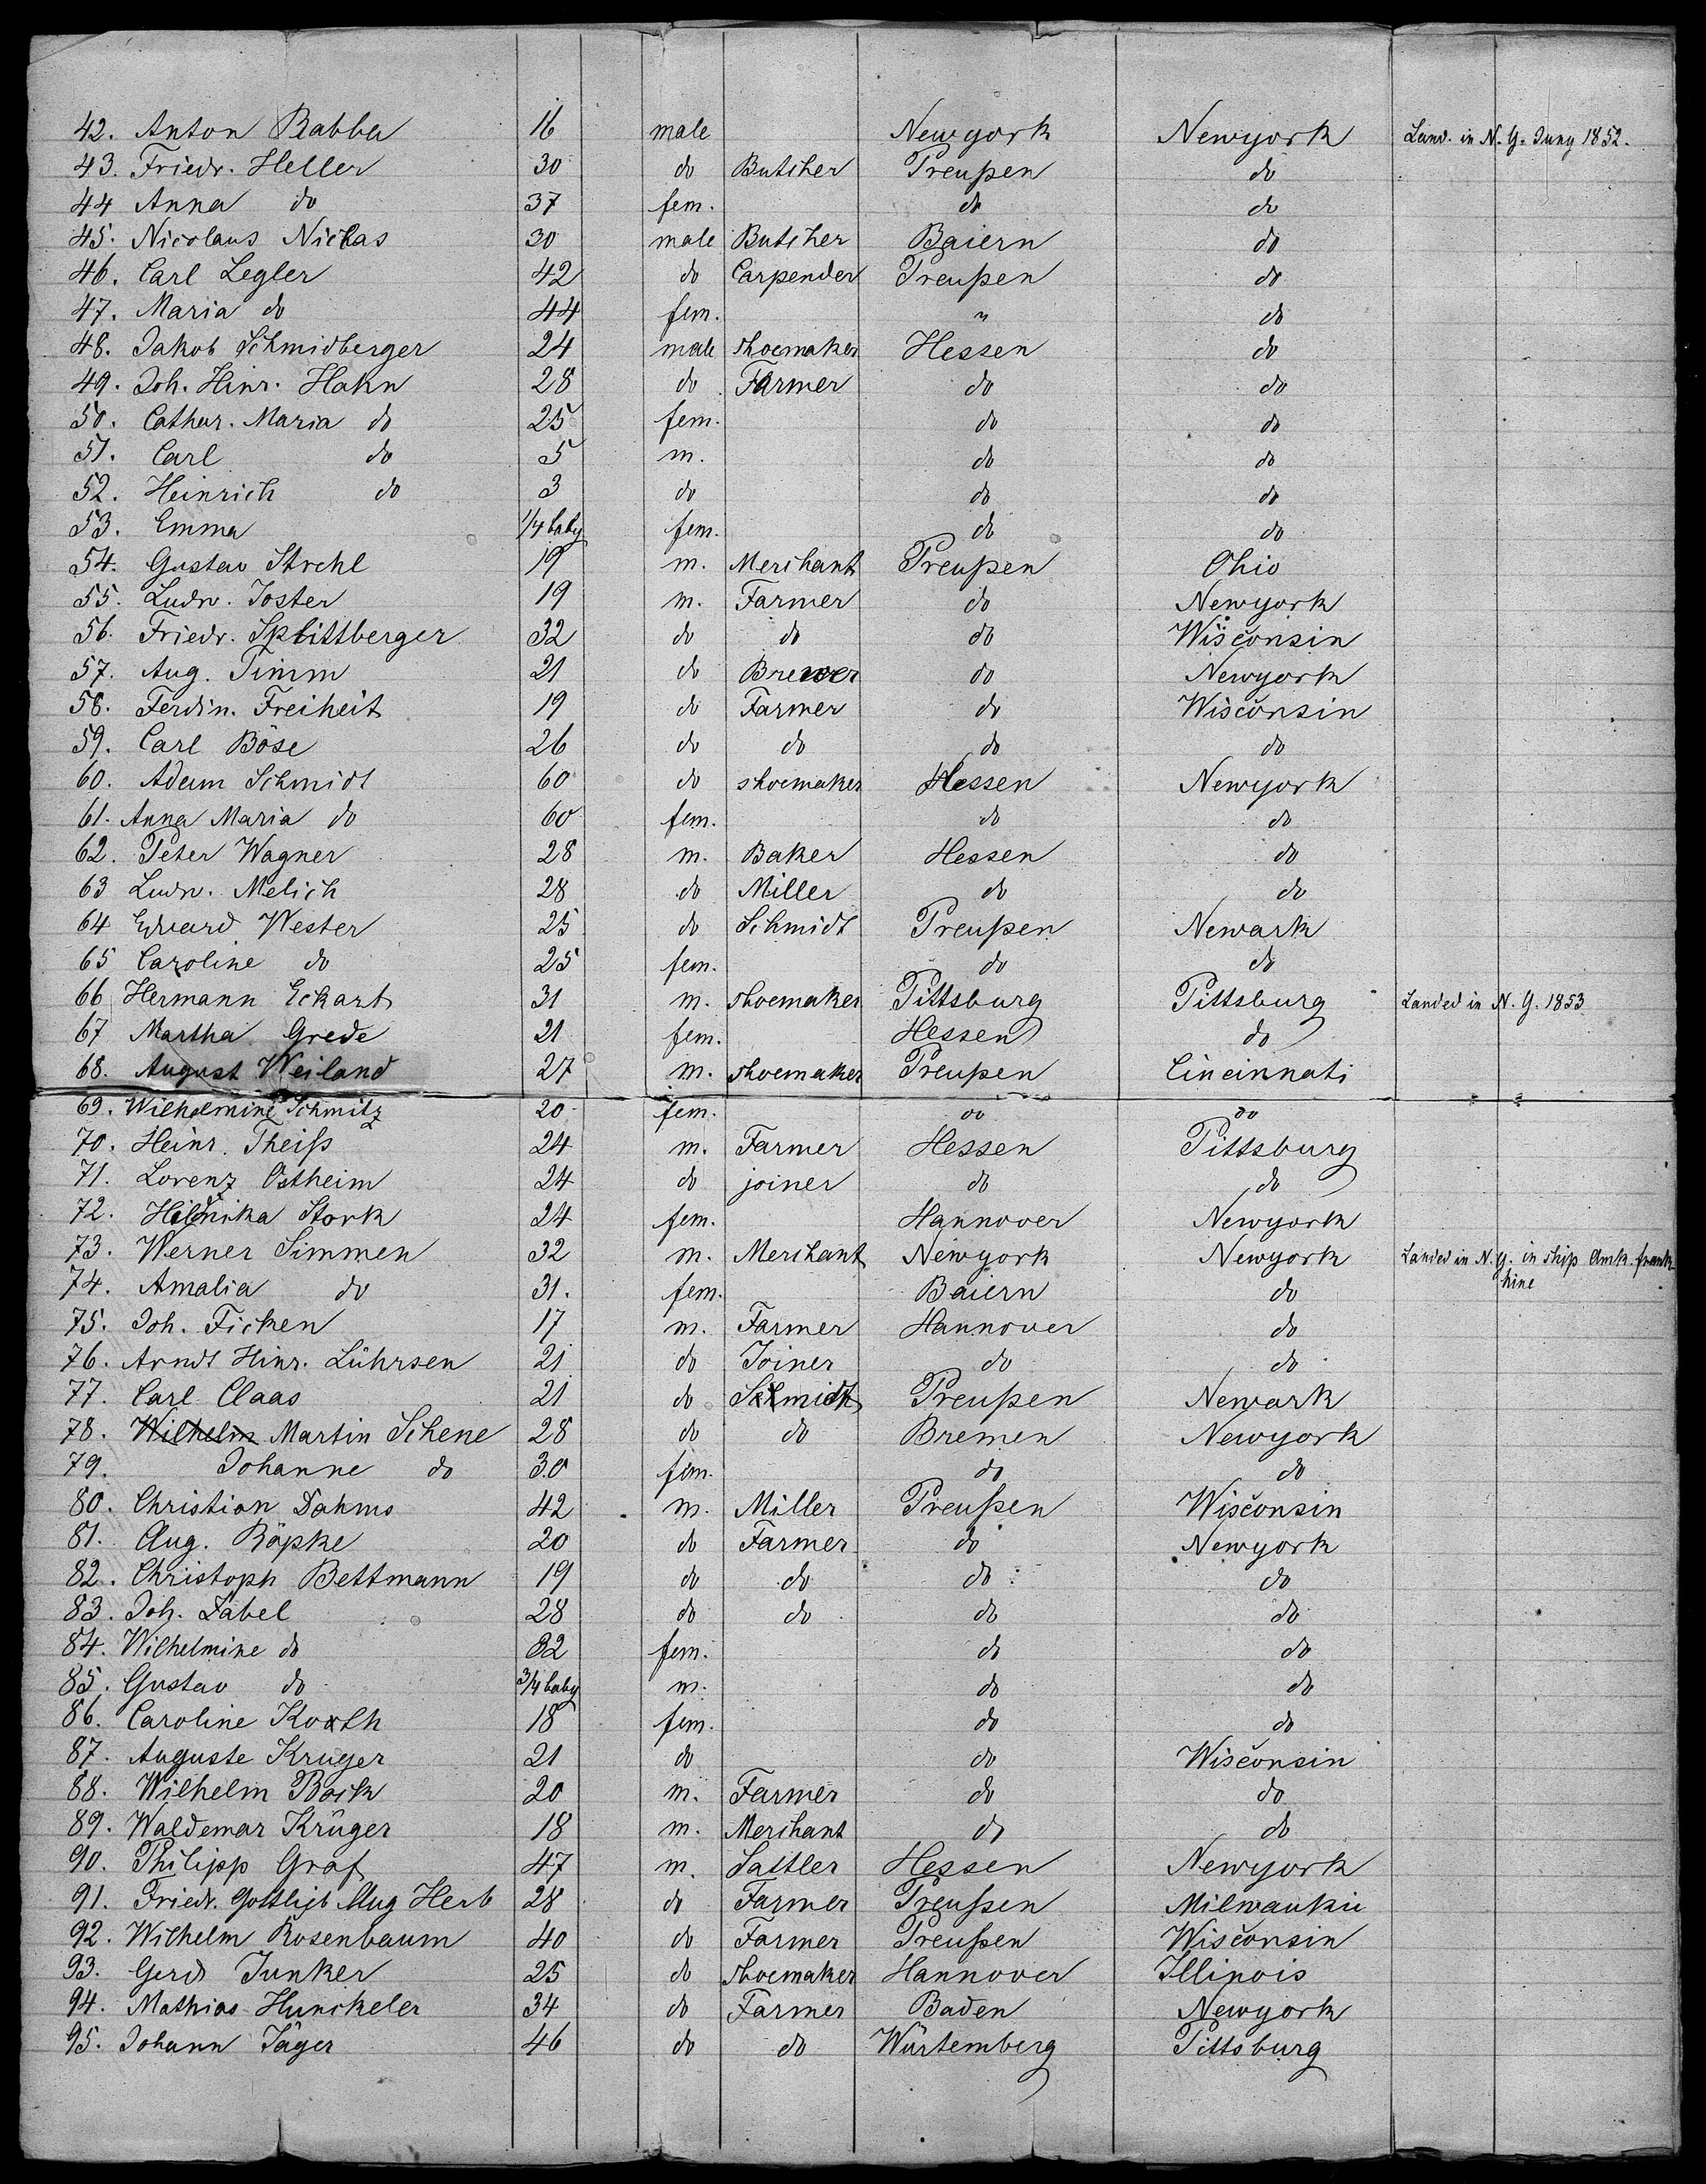 42. Anton Rabba 16 male Newyork Newyork Land. in N. Y. Juny 1852.
43. Friedr. Heller 30 do Butcher Preußen do
44 Anna do 37 fem. do do
45. Nicolaus Nicklas 30 male Butcher Baiern do
46. Carl Legler 42 do Carpender Preußen do
47. Maria do 44 fem. " do
48. Jakob Schmidberger 24 male shoemaker Hessen do
49. Joh. Hinr. Hahn 28 do Farmer do do
50. Cathar. Maria do 25 fem. do do
51. Carl do 5 m. do do
52. Heinrich do 3 do do do
53. Emma 1/4 baby fem. do do
54. Gustav Strehl 19 m. Merchant Preußen Ohio
55. Ludw. Joster 19 m. Farmer do Newyork
56. Friedr. Splittberger 32 do do do Wisconsin
57. Aug. Timm 21 do Brewer do Newyork
58. Ferdin. Freiheit 19 do Farmer do Wisconsin
59. Carl Böse 26 do do do do
60. Adam Schmidt 60 do shoemaker Hessen Newyork
61. Anna Maria do 60 fem. do do
62. Peter Wagner 28 m. Baker Hessen do
63 Ludw. Melich 28 do Miller do do
64 Eduard Wester 25 do Schmidt Preußen Newark
65 Caroline do 25 fem. do do
66 Hermann Eckart 31 m. shoemaker Pittsburg Pittsburg Landed in N. Y. 1853
67 Martha Grede 21 fem. Hessen do
68. August Weiland 27 m. shoemaker Preußen Cincinnati
69. Wilhelmine Schmitz 20 fem. do do
70. Heinr. Theiß 24 m. Farmer Hessen Pittsburg
71. Lorenz Ostheim 24 do joiner do do
72. Stork 24 fem. Hannover Newyork
73. Werner Simmen 32 m. Merchant Newyork Newyork Landed in N. Y. in ship
74. Amalia do 31. fem. Baiern do
75. Joh. Ficken 17 m. Farmer Hannover do
76. Arndt Hinr. Lührsen 21 do Joiner do do
77. Carl Claas 21 do Schmidt Preußen Newark
78. Wilhelm Martin Schene 28 do do Bremen Newyork
79. Johanne do 30 fem. do do
80. Christian Dahms 42 m. Miller Preußen Wisconsin
81. Aug. Röpke 20 do Farmer do Newyork
82. Christoph Bettmann 19 do do do do
83. Joh. Zabel 28 do do do do
84. Wilhelmine do 32 fem. do do
85. Gustav do 3/4 baby m. do do
86. Caroline Korth 18 fem. do do
87. Auguste Kruger 21 do do Wisconsin
88. Wilhelm Bock 20 m. Farmer do do
89. Waldemar Krüger 18 m. Merchant do do
90. Philipp Graf 47 m. Sattler Hessen Newyork
91. Friedr. Gottlieb Aug Herb 28 do Farmer Preußen Milwaukie
92. Wilhelm Rosenbaum 40 do Farmer Preußen Wisconsin
93. Gerd Junker 25 do shoemaker Hannover Illinois
94. Mathias Hunckeler 34 do Farmer Baden Newyork
95. Johann Jäger 46 do do Würtemberg Pittsburg